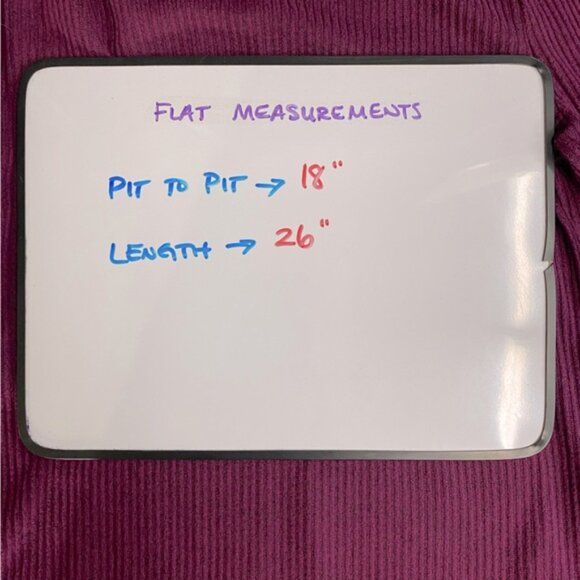 FLAT MEASUREMENTS
PIT TO PIT → 18"
LENGTH → 26"